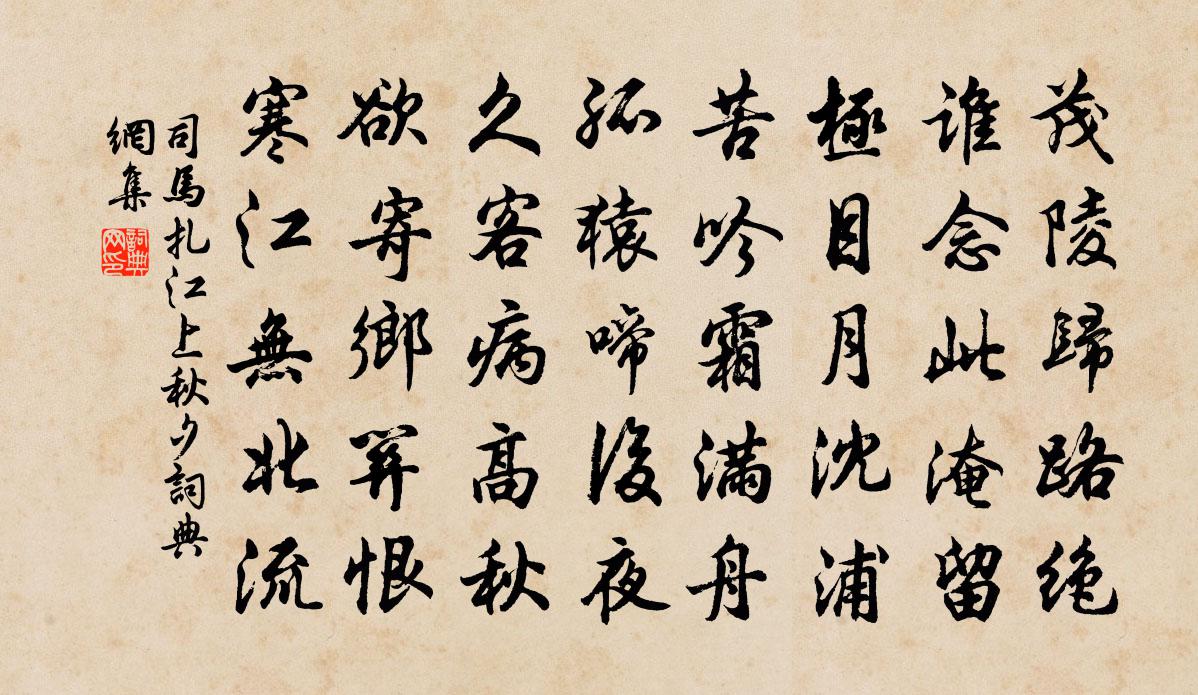 茂陵歸路绝
谁念此淹留
極目月沈浦
苦吟霜满舟
孤猿啼後夜
久客病高秋
欲寄鄉關恨
寒江無北流
司馬扎江上秋夕詞典
網集
詞典
网印